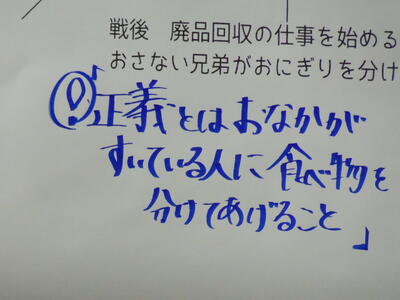 戦後 廃品回収の仕事を始める
おさない兄弟がおにぎりを分け
正義とはおなかが
すいている人に食べ物を
分けてあげること」